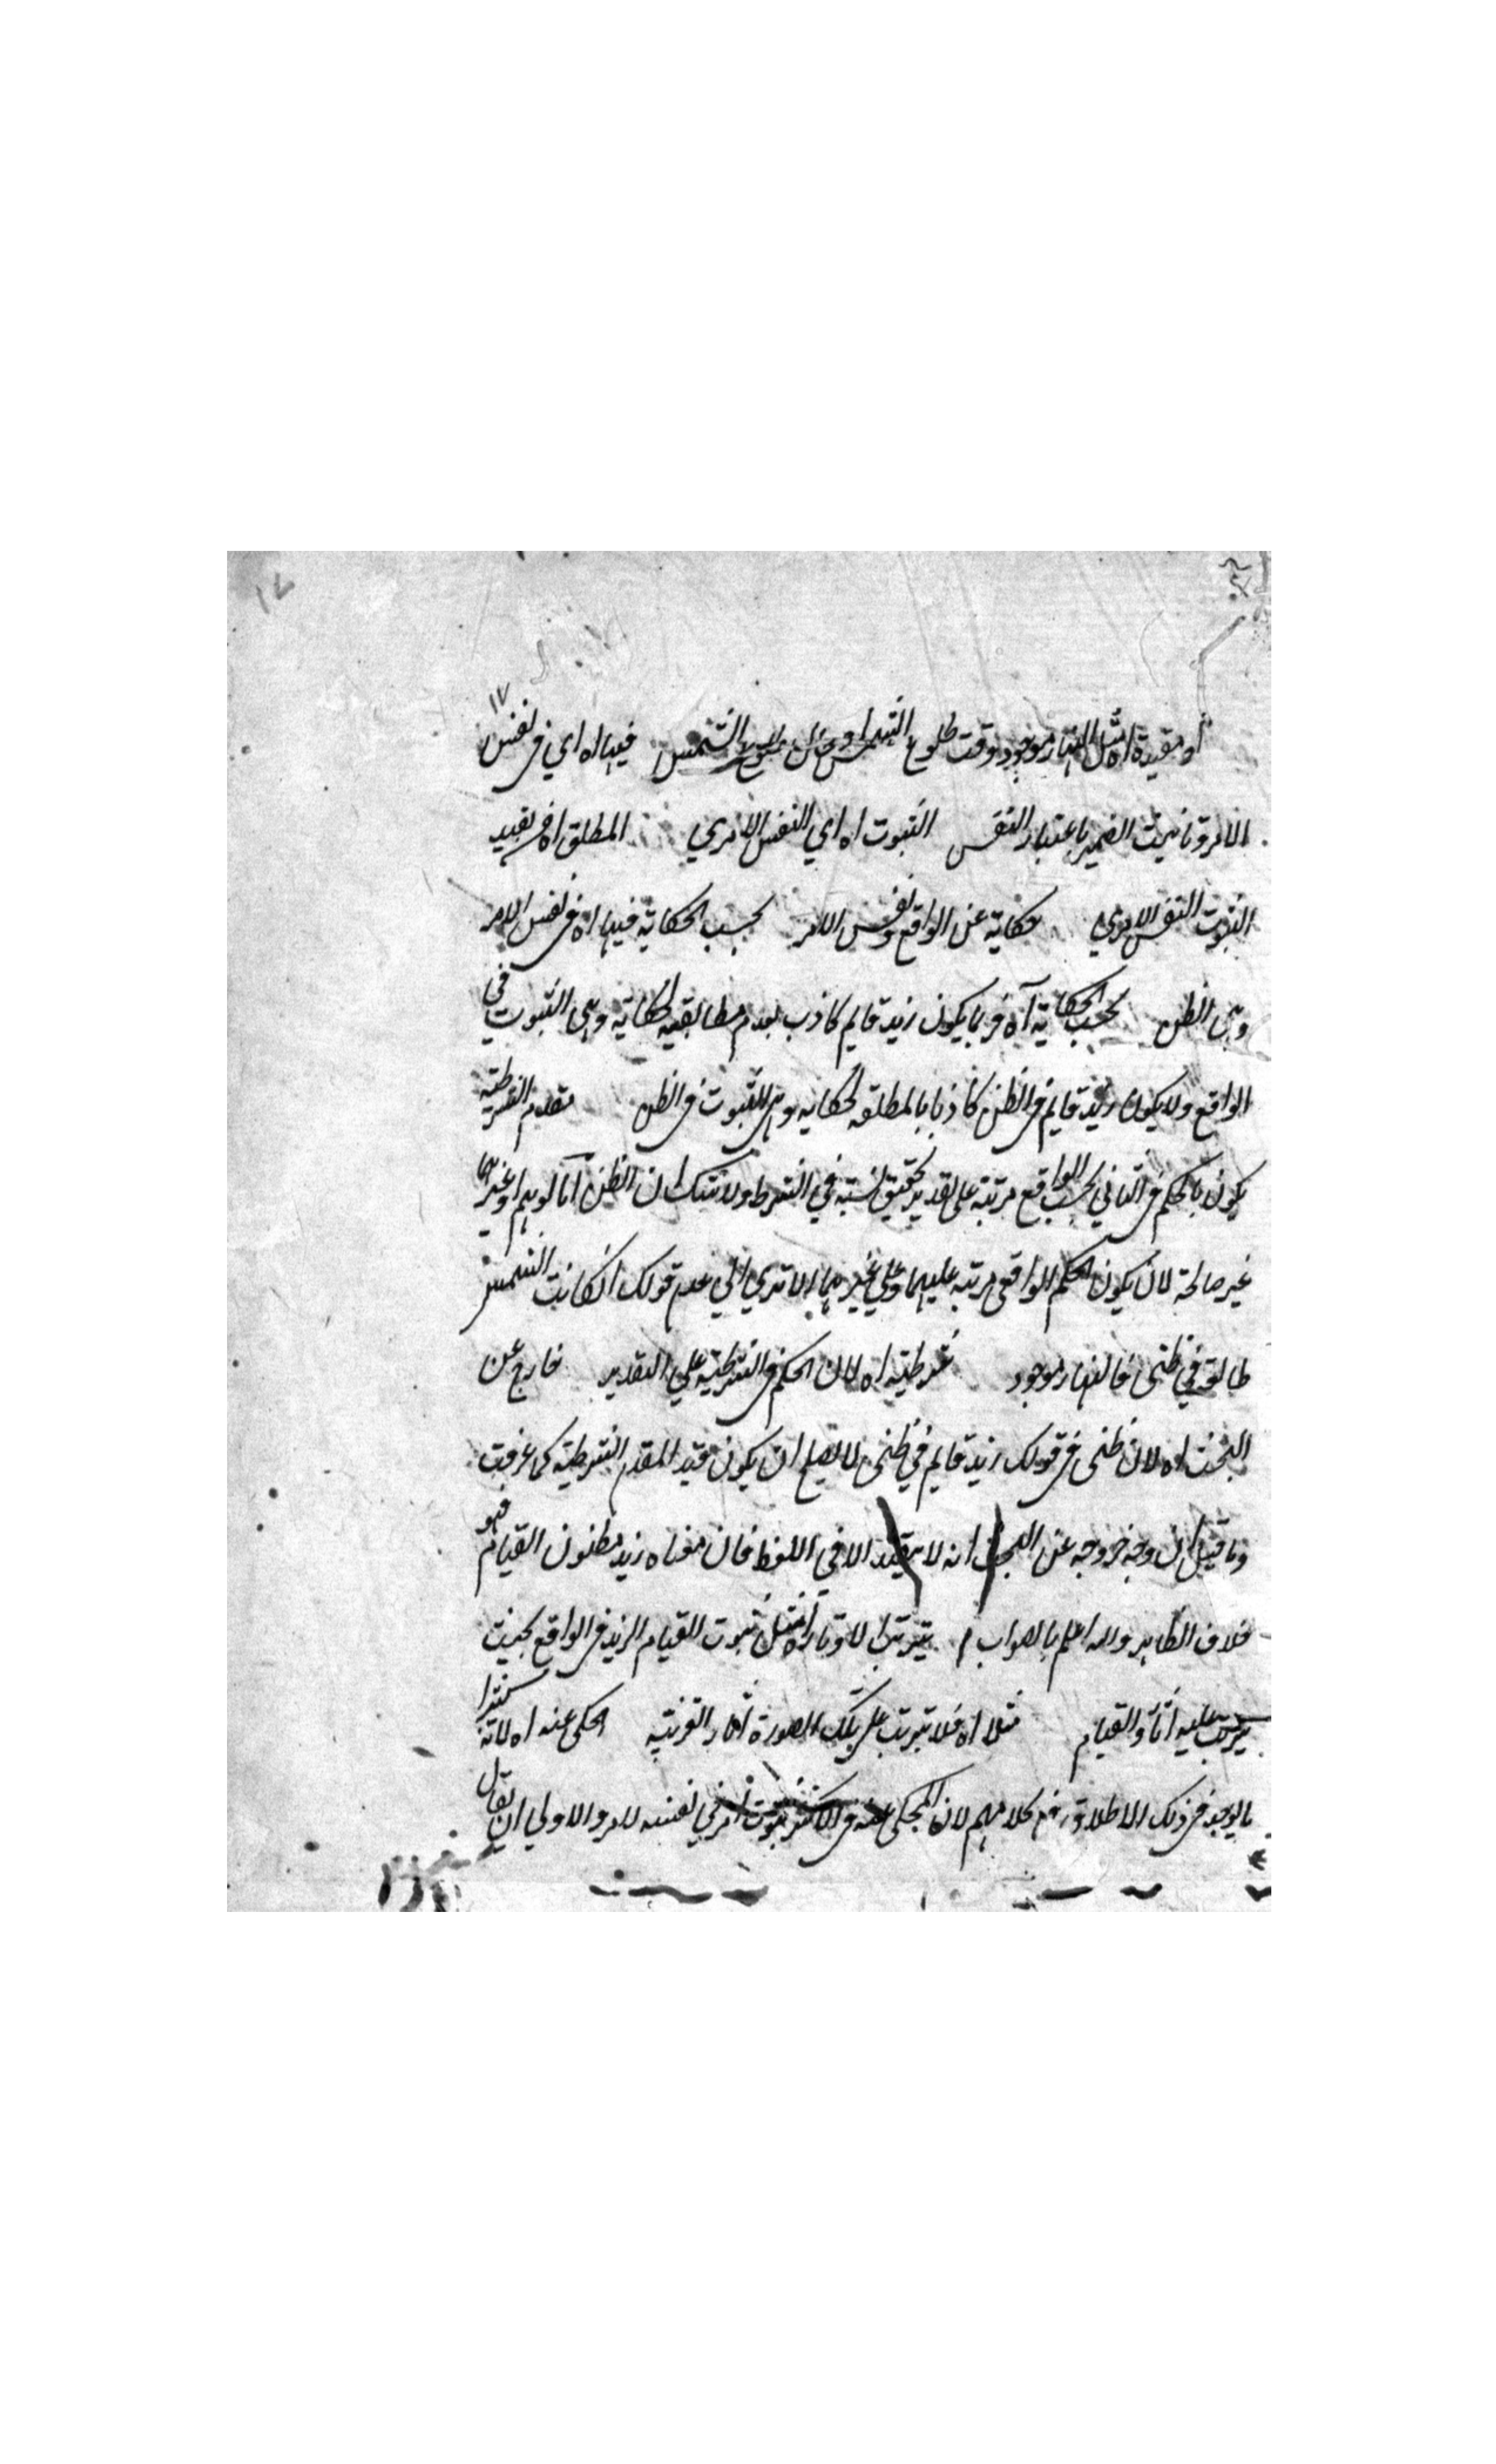 ١٧
او مقيدة اه مثل النهار موجود وقت طلوع الشمس او حال طلوع الشمس فيها اه اي في نفس
الامر وتانيث الضمير باعتبار النفس الثبوت اه اي النفس الامري المطلق اه في تقييد
الثبوت النفس الامري حكاية عن الواقع ونفس الامر بحسب الحكاية فيها اه في نفس الامر
وهي الظن بحسب الحكاية آه فربما يكون زيد قايم كاذب بعدم مطابقيه لحكاية وهي الثبوت في
الواقع ولا يكون زيد قايم في الظن كاذبا بالمطلقه لحكايه وهي الثبوت في الظن مقدم الشرطية
يكون بالحكم في الثاني بحسب الواقع مرتبة على تقدير تحقيق نسبة في الشرط ولا شك ان الظن اما لوهم او غيرهما
غير صالحة لان يكون الحكم الواقعي مرتبه عليهما وعلي غيرهما الا تري الي عدم قولك انكانت الشمس
طالعة في ظني فالنهار موجود شرطية اه لان الحكم في الشرطيه علي التقدير خارج عن
البحث اه لان ظني في قولك زيد قايم في ظني لا يصلح ان يكون قيد المقدم الشرطية كما عرفت
وما قيل ان وجه خروجه عن البحث انه لا تقييد الا في اللفظ فان معناه زيد مظنون القيام فهو
خلاف الظاهر والله اعلم بالصواب ترتب الاوتار اه مثل ثبوت القيام لزيد في الواقع بحيث
يترتب عليه اثار القيام مثلا اه فلا تترتب على تلك الصورة آثار القرينية الحكي عنه اه لانه كثيرا
ما يوجد في ذلك الاطلاق في كلامهم لان المحكي عنه في الاكثر ثبوت امر في نفسه لامر والاولي ان يقال